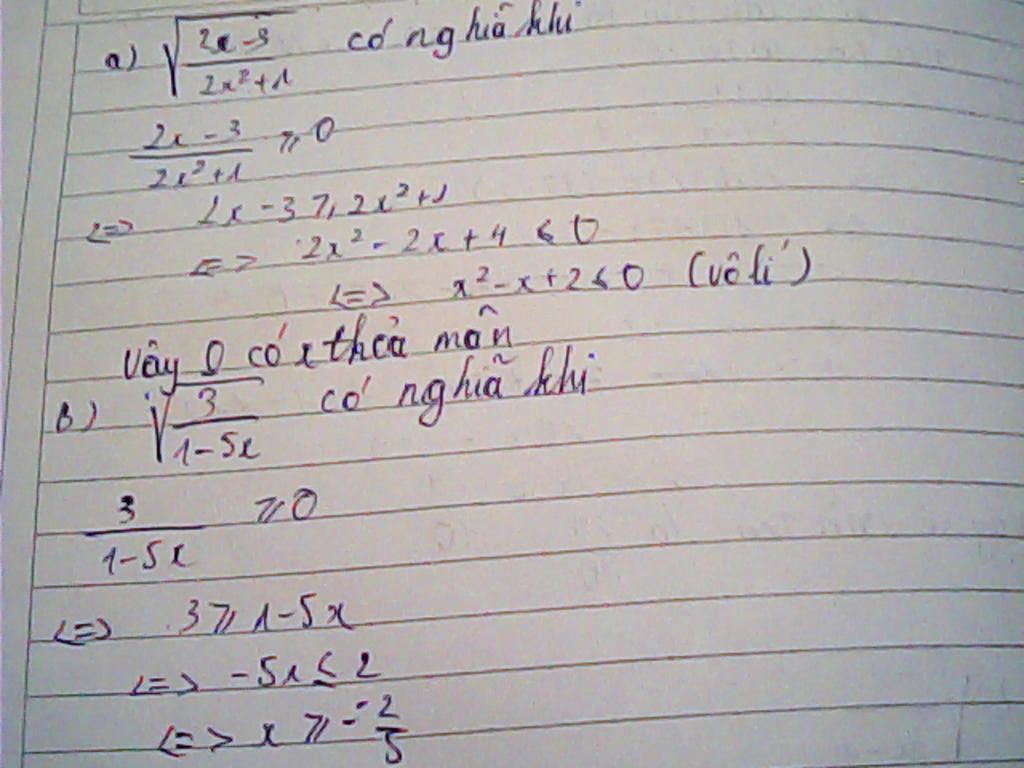 a) √((2x-3)/(2x²+1)) có nghĩã khi
(2x-3)/(2x²+1) ≥ 0
<=> 2x-3 ≥ 2x²+1
<=> 2x²-2x+4 ≤ 0
<=> x²-x+2 ≤ 0 (vô lí)
Vậy 0 có x thỏa mãn
b) √(3/(1-5x)) có nghĩã khi
3/(1-5x) ≥ 0
<=> 3 ≥ 1-5x
<=> -5x ≤ 2
<=> x ≥ -2/5